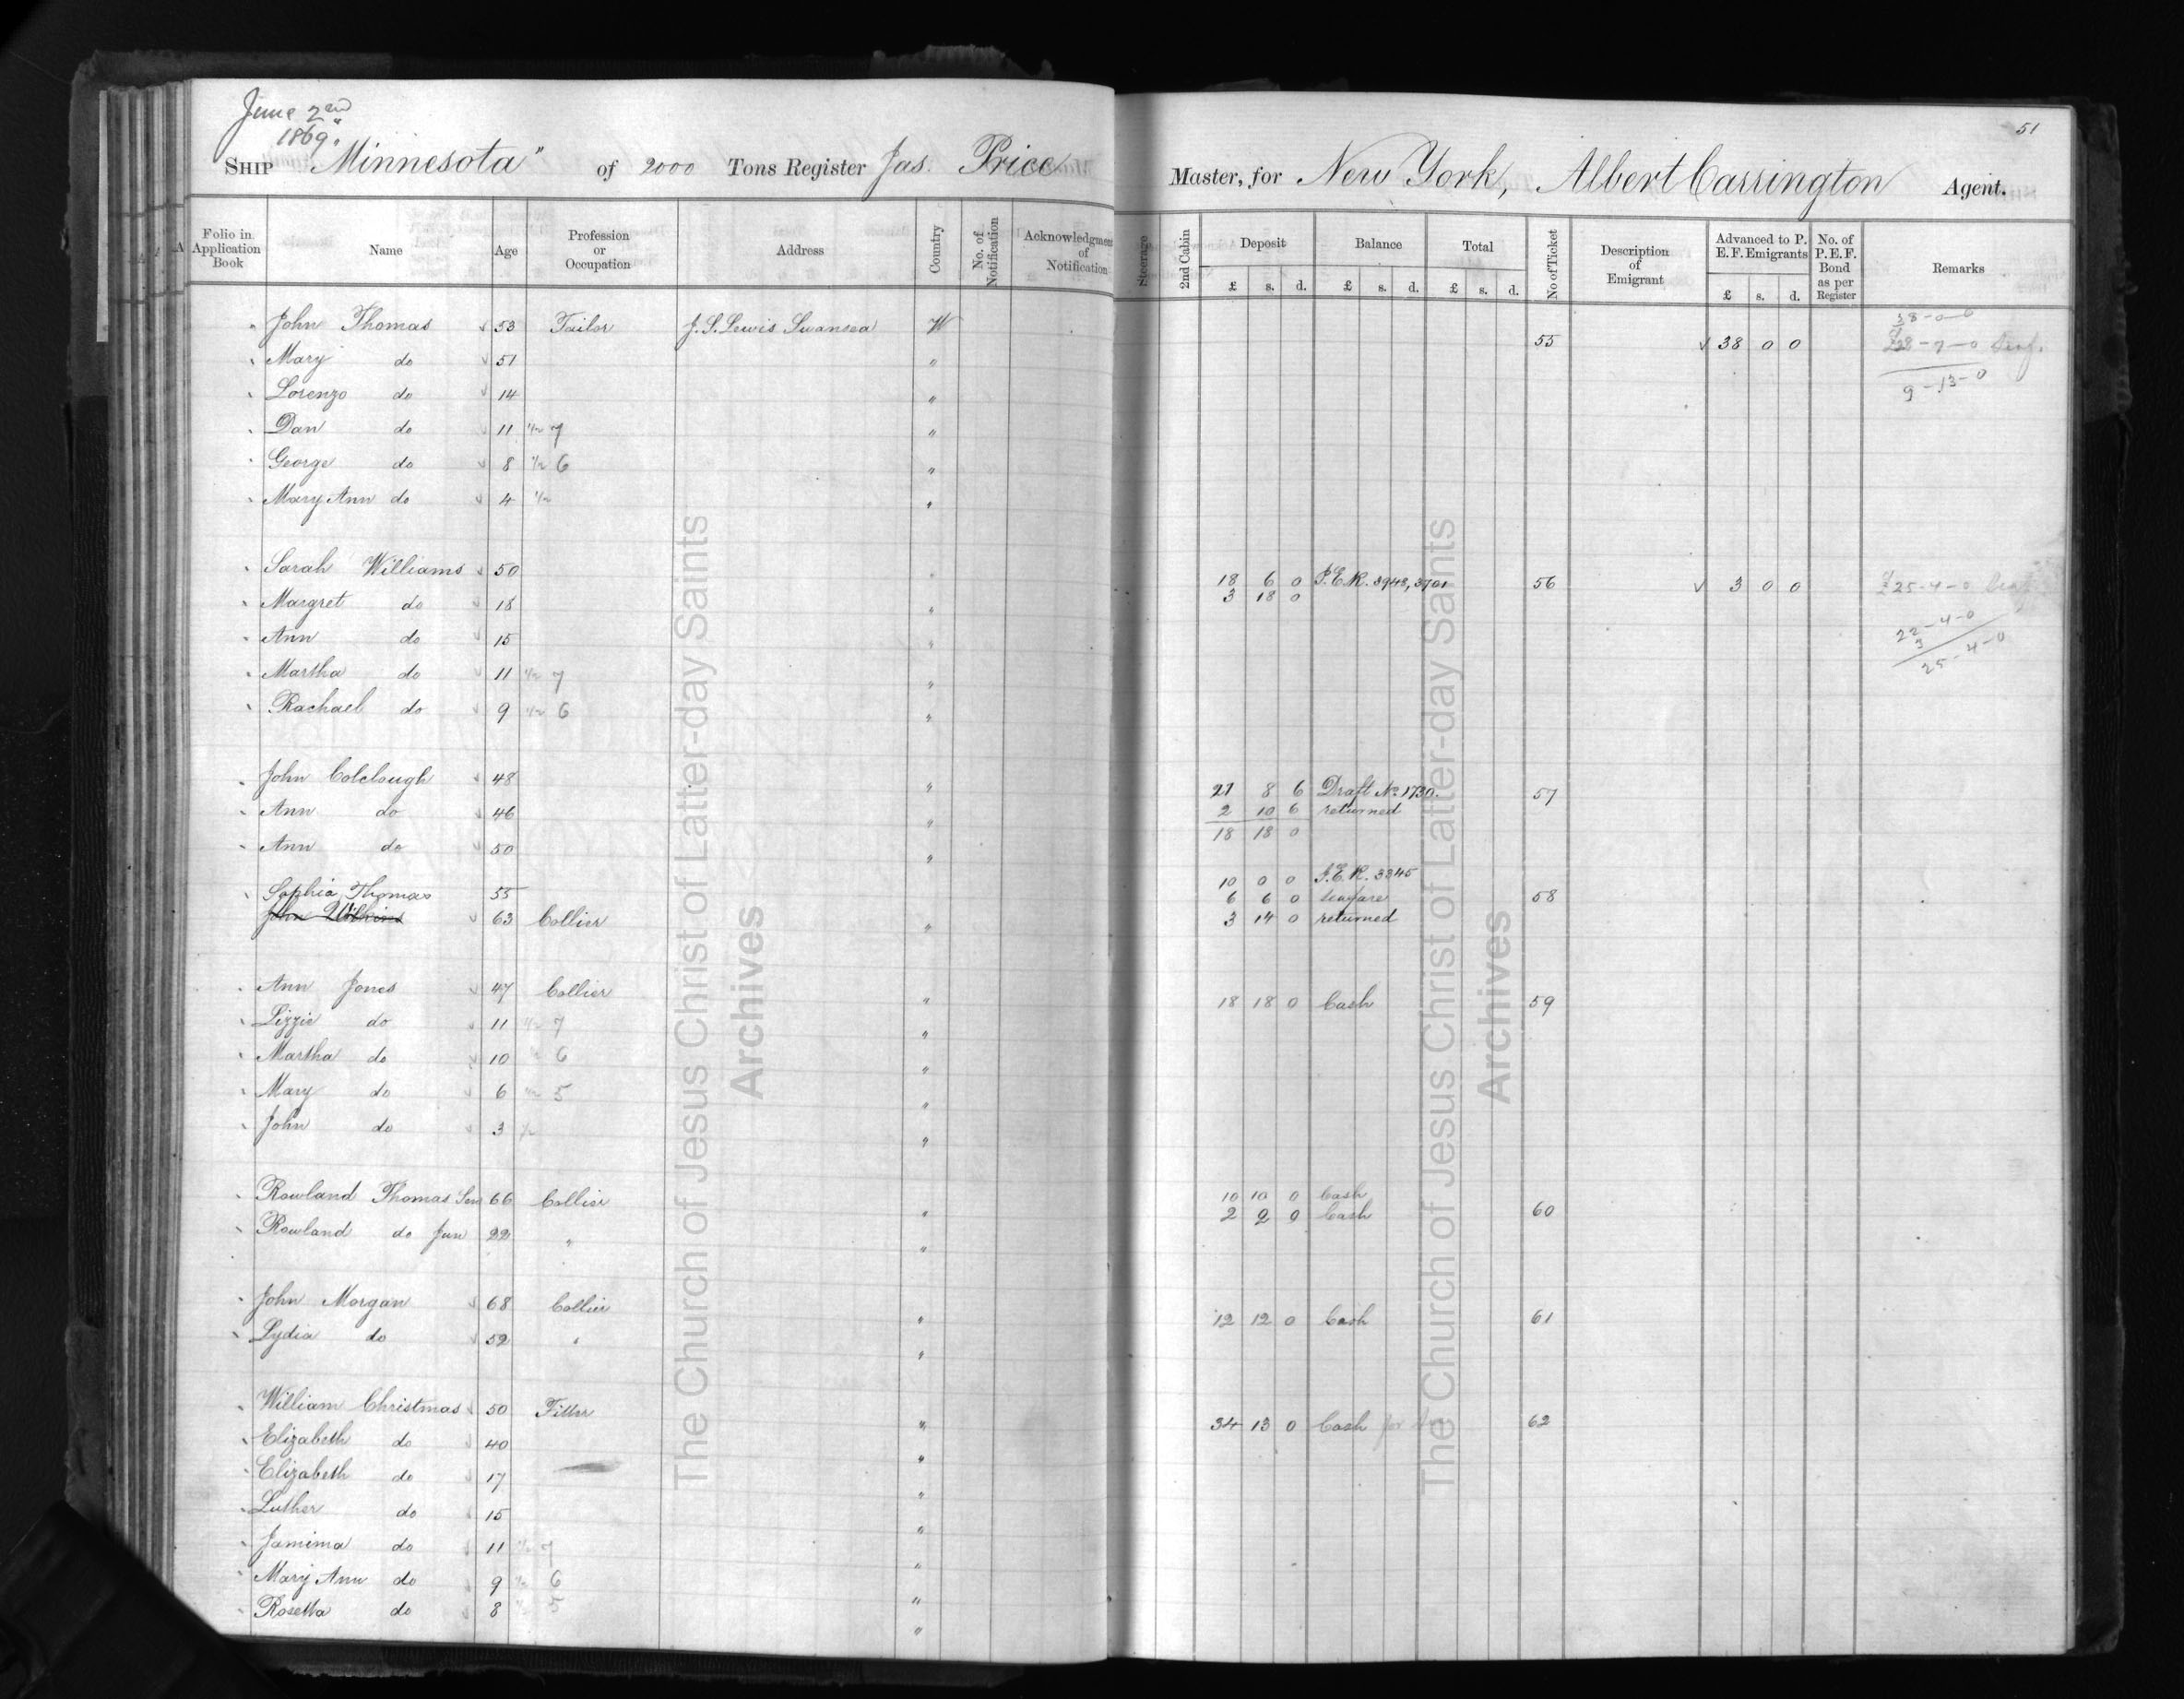 June 2nd
1869.
51
SHIP Minnesota" of 2000 Tons Register Jas. Price Master, for New York, Albert Carrington Agent.
Folio in Application Book Name Age Profession or Occupation Address Country No. of Notification Acknowledgment of Notification Steerage 2nd Cabin Deposit £ s. d. Balance £ s. d. Total £ s. d. No of Ticket Description of Emigrant Advanced to P. E. F. Emigrants £ s. d. No. of P. E. F. Bond as per Register Remarks
John Thomas 53 Tailor J. S. Lewis Swansea W 55 38 0 0 38-0-0
Mary do 51 " £28-7-0
Lorenzo do 14 " 9-13-0
Dan do 11 1/2 7 "
George do 8 1/2 6 "
Mary Ann do 4 1/2 "
Sarah Williams 50 " 18 6 0 P.E.R. 3948, 3701 56 3 0 0 £25-4-0
Margret do 18 " 3 18 0
Ann do 15 " 22-4-0
3
Martha do 11 1/2 7 " 25-4-0
Rachael do 9 1/2 6 "
John Colclough 48 " 21 8 6 Draft No. 1730. 57
Ann do 46 " 2 10 6 returned
Ann do 50 " 18 18 0
Sophia Thomas 55 10 0 0 P.E.R. 3345
John Wilkins 63 Collier " 6 6 0 seafare 58
3 14 0 returned
Ann Jones 47 Collier " 18 18 0 Cash 59
Lizzie do 11 1/2 7 "
Martha do 10 1/2 6 "
Mary do 6 1/2 5 "
John do 3 1/2 "
Rowland Thomas Sen 66 Collier " 10 10 0 Cash 60
Rowland do Jun 22 " " 2 2 0 Cash
John Morgan 68 Collier " 12 12 0 Cash 61
Lydia do 52 " "
William Christmas 50 Fitter " 34 13 0 Cash for 62
Elizabeth do 40 "
Elizabeth do 17 "
Luther do 15 "
Jamima do 11 1/2 7 "
Mary Ann do 9 1/2 6 "
Rosetta do 8 1/2 5 "
The Church of Jesus Christ of Latter-day Saints
Archives
The Church of Jesus Christ of Latter-day Saints
Archives